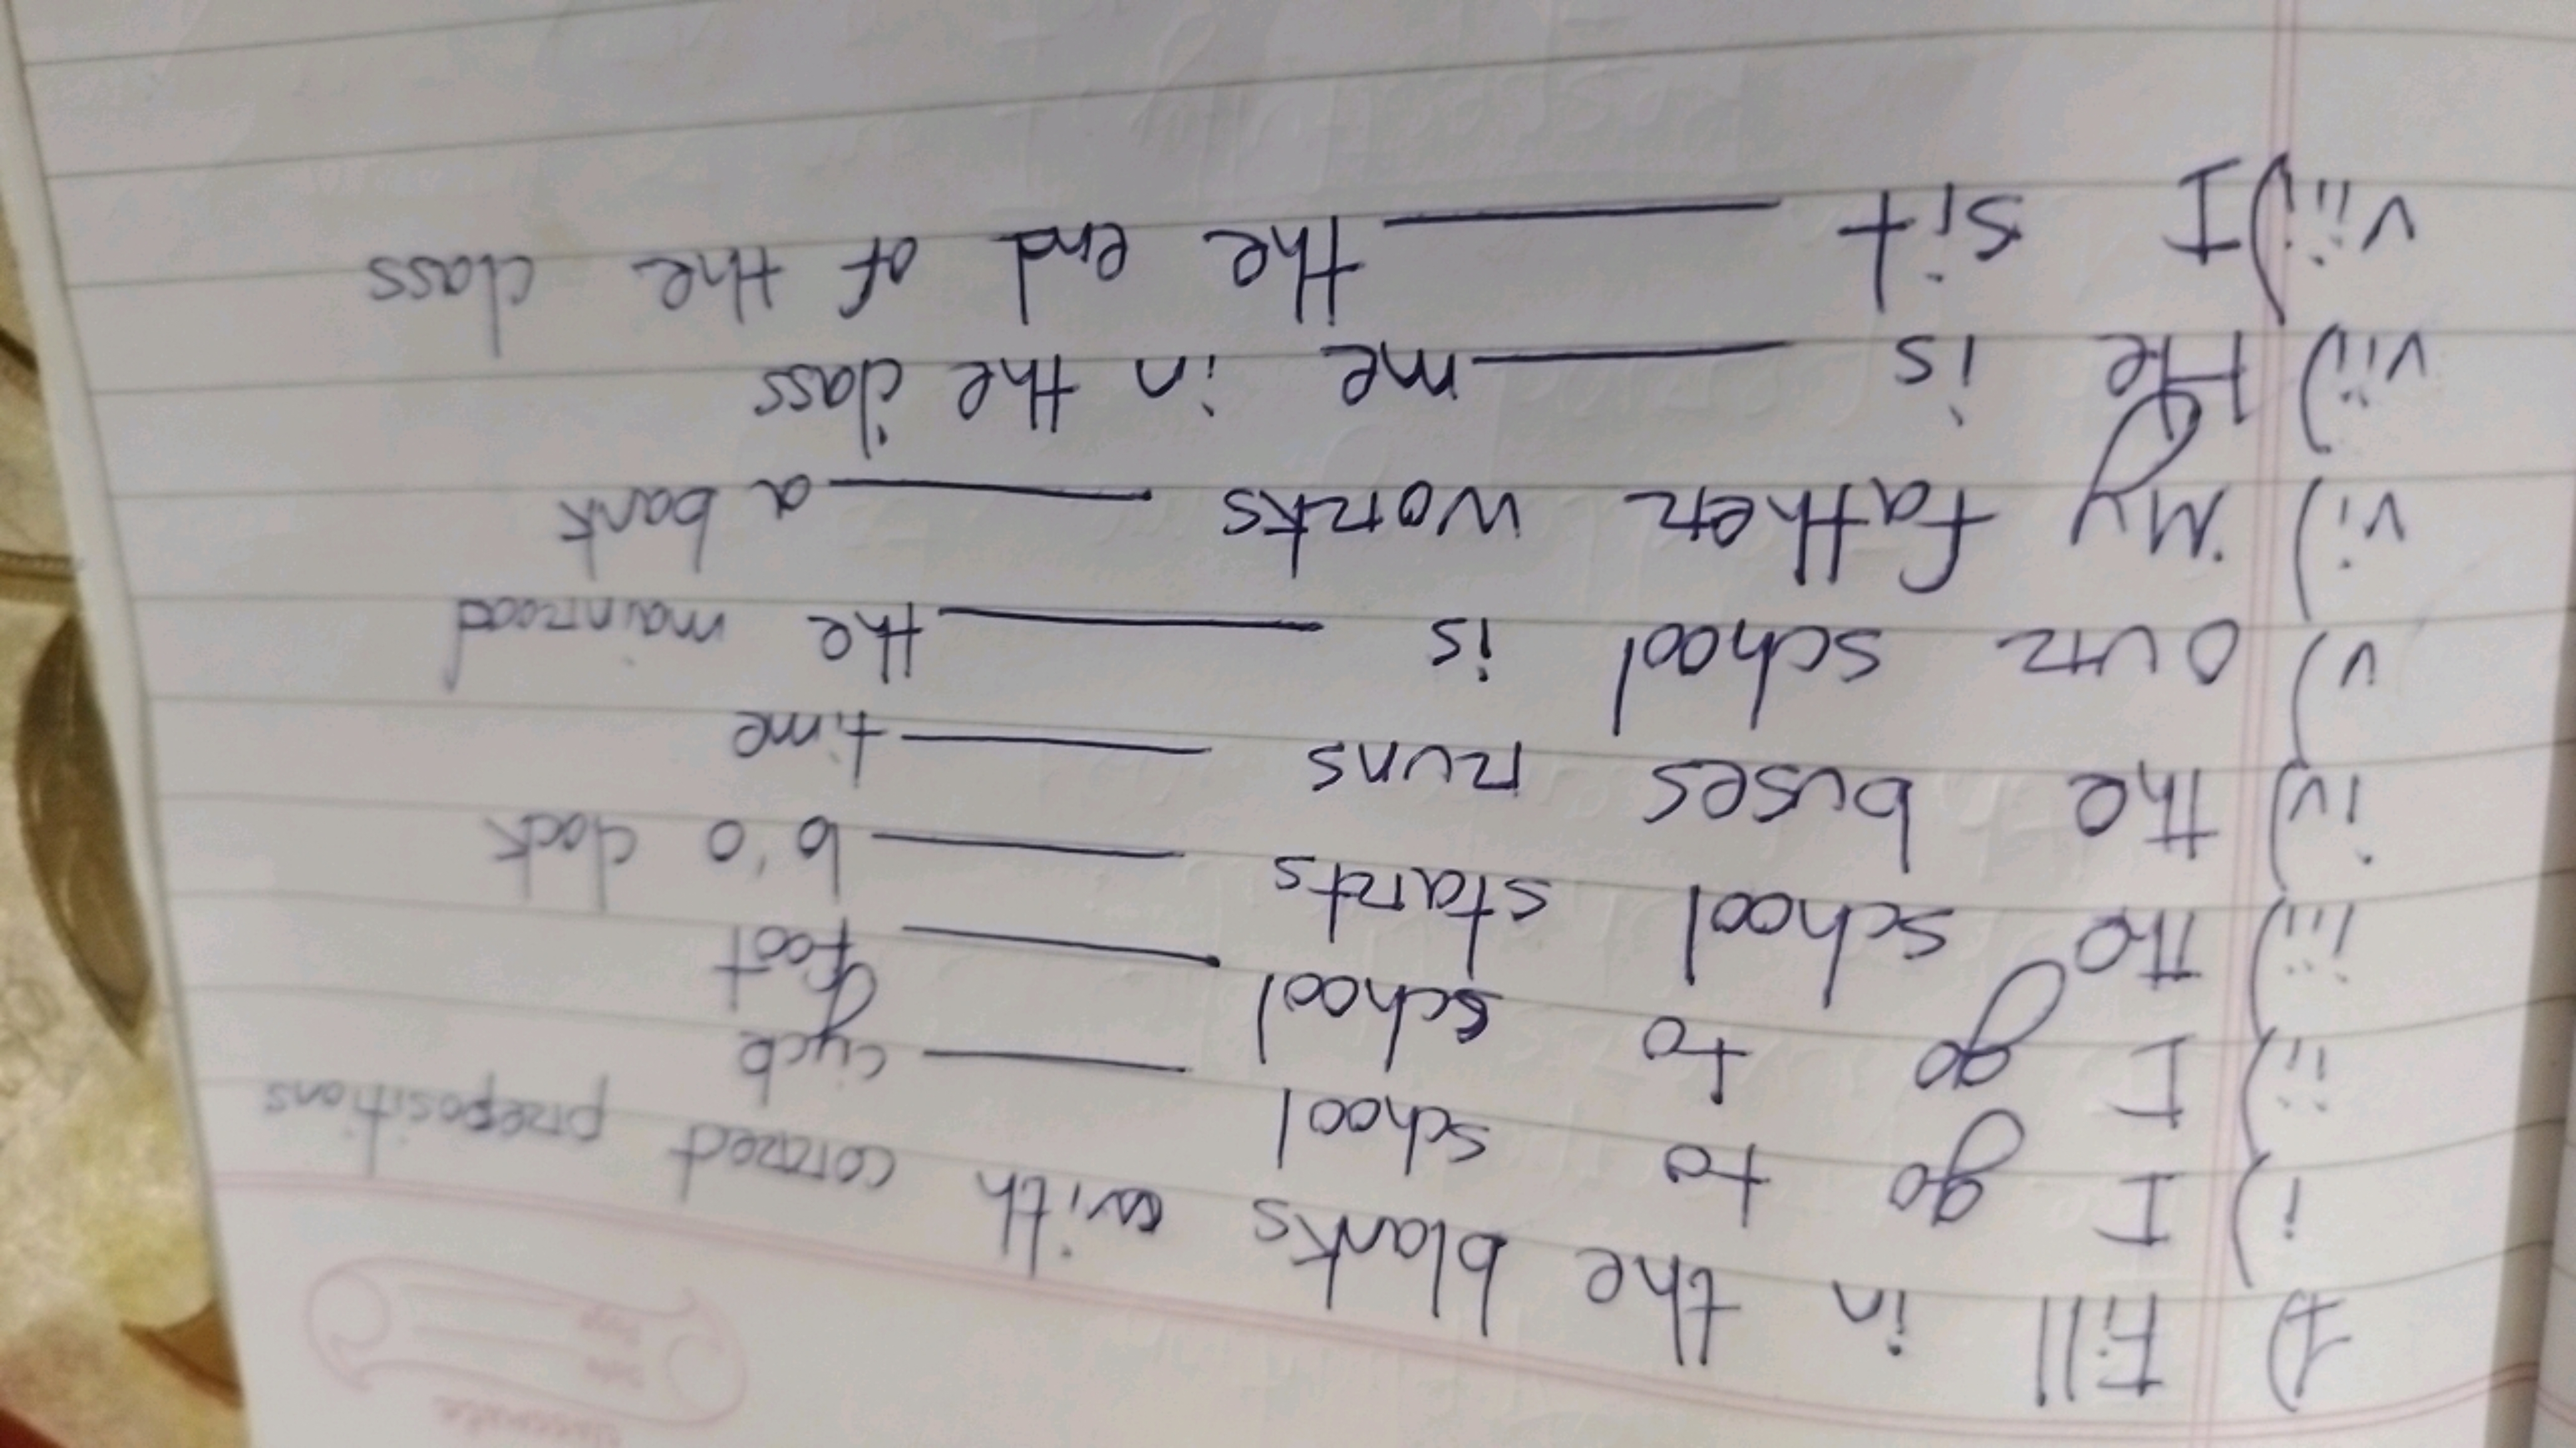 1) Fill in the blanks with correct prepositions
i) I go to school ______ cycle
ii) I go to school ______ foot
iii) The school starts ______ 6'o clock
iv) The buses runs ______ time
v) Our school is ______ the mainroad
vi) My father works ______ a bank
vii) He is ______ me in the class
viii) I sit ______ the end of the class